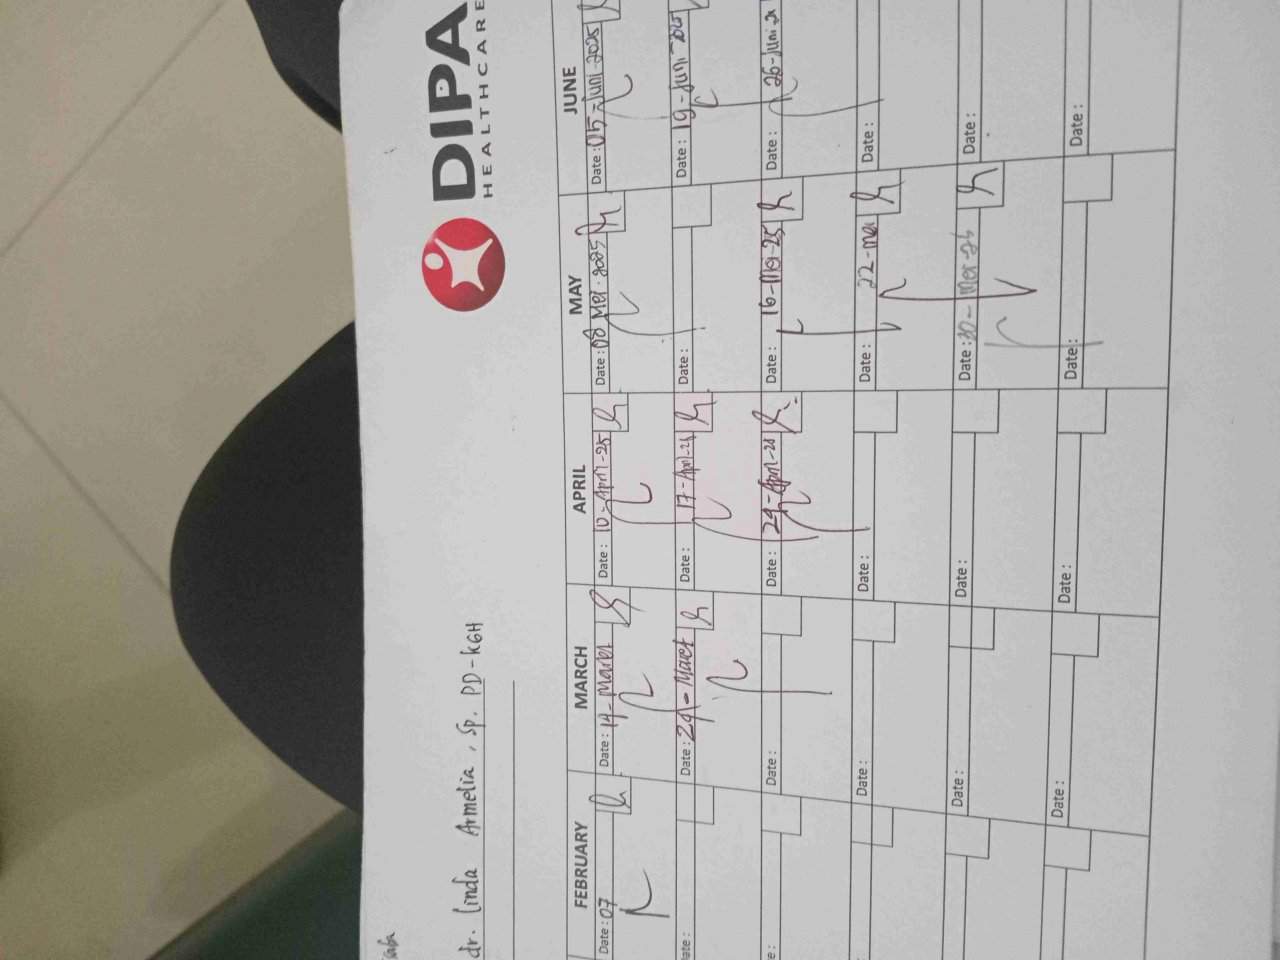 DIPA
HEALTHCARE
dr. Linda Armelia, Sp. PD-KGH
FEBRUARY MARCH APRIL MAY JUNE
Date: 07 Date: 14-Maret Date: 10-April-25 Date: 08 Mei-2025 Date: 05-Juni-2025
Date: Date: Date: 17-April-25 Date: Date: 19-Juni-2025
Date: Date: Date: 16-Mei-25 Date: 26-Juni
Date: Date: Date: 22-Mei Date:
Date: Date: Date: 30-Mei-25 Date:
Date: Date: Date: Date: